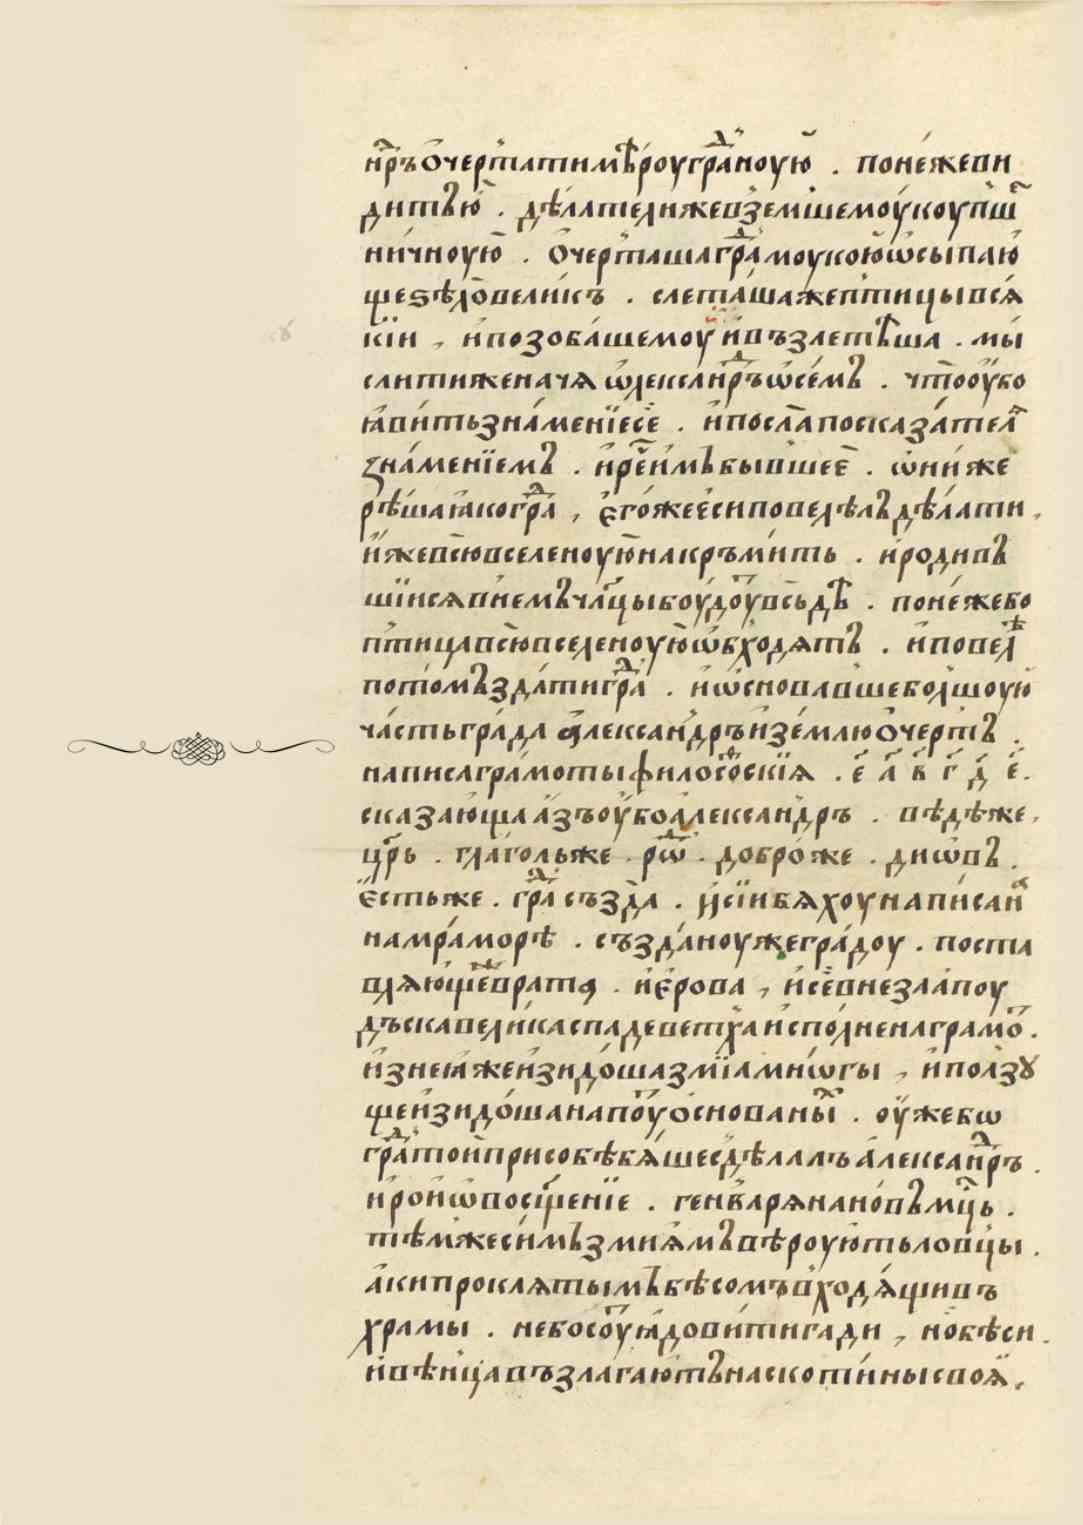 нⷣръ очертати мѣроу граⷣноую . понеже ви
дитъ ю . дѣлателиже вземшемоу коупшⷭ
ничноую . очерташа граⷣ моукою ѡсыпаю
ще ѕѣло великъ . слеташаже птицы всѧ
кїи , и позобаше моу и възлетѣша . мы
слитиже начѧ ѡлексанⷣръ ѡ семъ . что оубо
ꙗвить знаменїе се . и посла по сказателѧ
знаменїемъ . и реⷱ имъ бывшее . ѡниже
рѣша ꙗко граⷣ , егоже еси повелѣлъ дѣлати ,
иже всю вселеноую накръмить . и родивъ
шїисѧ в немъ члⷪцы боудоуⷮ всьдѣ . понеже бо
птица всю вселеноую ѡбходѧтъ . и повелⷷ
потомъ здати граⷣ . и ѡсновавше болшоую
часть града александръ и землю очертъ .
написа грамоты философⷭскїѧ . е҃ а҃ в҃ г҃ д҃ е҃ .
сказающа азъ оубо александръ . вѣдѣже ,
црⷭь . глаголъже . роⷣѡ . доброже . диѡвъ .
естьже . граⷣ създа . и сїи бѧхоу написанⷶ
на мраморѣ . създаноу же градоу . поста
влѧющеⷨ врата . и ерова , и се внезаапоу
дъска велика спаде ветха исполнена грамоⷮ .
из неꙗже изидоша змїа мнѡгы , и ползꙋ
ще изидоша на поуⷮ основаныⷯ . оужебѡ
граⷣ тои при собѣ бѧше сдѣлалъ алексанⷣръ .
и рои ѡ посщенїе . генварѧ на новъ мцⷭь .
тѣмже симъ змиѧмъ вѣроуютъ ловцы .
аки проклѧтымъ бѣсомъ входѧщи въ
храмы . не бо соуⷮ ꙗдовити гади , но бѣси
и вѣнца възлагають на скотины своѧ .